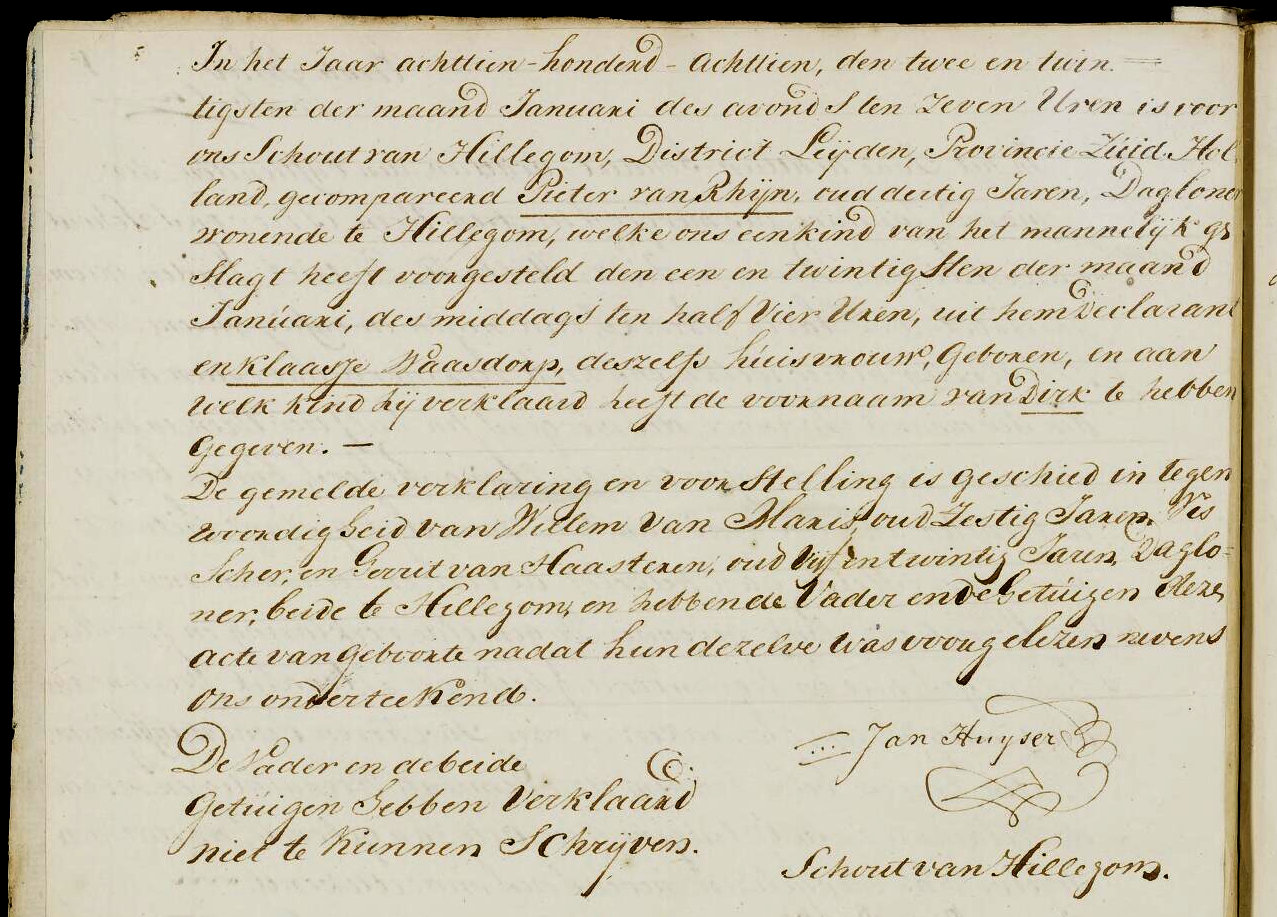 In het Jaar achttien-honderd-achttien, den twee en twin.=
tigsten der maand Januari des avonds ten zeven Uren is voor
ons Schout van Hillegom, District Leijden, Provincie Zúid-Hol.
land, gecompareerd Pieter van Rhijn, oud dertig Jaren, Dagloner
wonende te Hillegom, welke ons een kind van het mannelijk ge
slagt heeft voorgesteld den een en twintigsten der maand
Janúari, des middags ten half Vier Uren, uit hem Declarant
en Klaasje Waasdorp, deszelfs húisvrouw, Geboren, en aan
welk kind hij verklaard heeft de voornaam van Dirk te hebben
gegeven. —
De gemelde verklaring en voorstelling is geschied in tegen
woordigheid van Willem van Maris, oud Zestig Jaren, Vis
scher, en Gerrit van Haasteren, oud Vijf en twintig Jaren, Daglo=
ner, beide te Hillegom, en hebben de Vader en de Getúigen deze
acte van geboorte nadat hun dezelve was voorgelezen nevens
ons onderteekend.
De Vader en de beide
Getúigen hebben Verklaard
niet te kunnen Schrijven.
Jan Huyser
Schout van Hillegom.